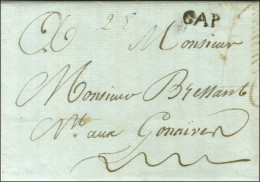 25 CAP
Monsieur
Monsieur Bressant
Nt. aux Gonaives